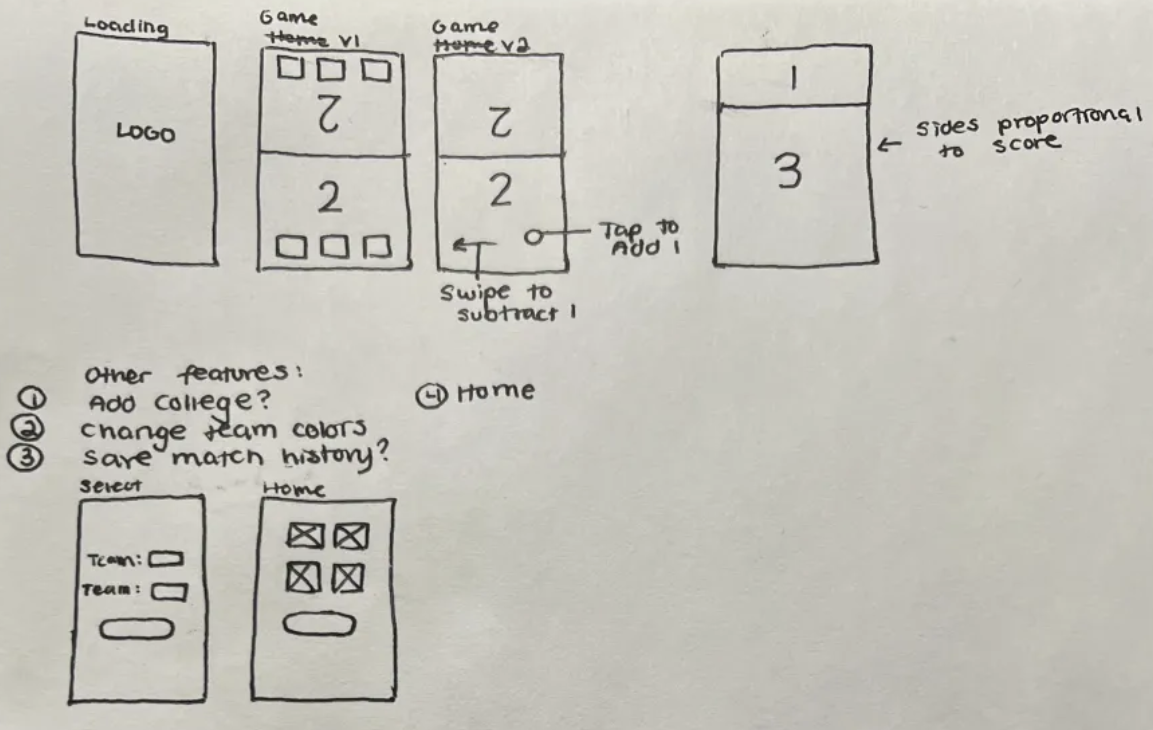 Loading
LOGO
Game
Home V1
2
2
Game
Home V2
2
2
Swipe to
subtract 1
Tap to
Add 1
1
3
← sides proportional
to score
Other features:
① Add college?
② change team colors
③ save match history?
④ Home
Select
Team:
Team:
Home